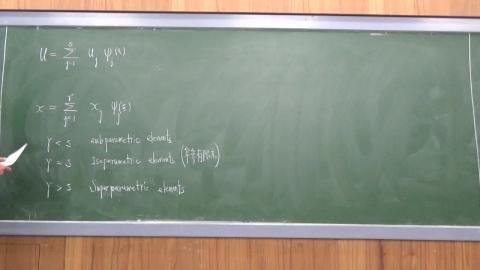 U = \sum_{j=1}^{s} u_j ψ_j(ξ)
x = \sum_{j=1}^{r} x_j ψ_j(ξ)
r < s subparametric elements
r = s Isoparametric elements (等参有限元)
r > s Superparametric elements